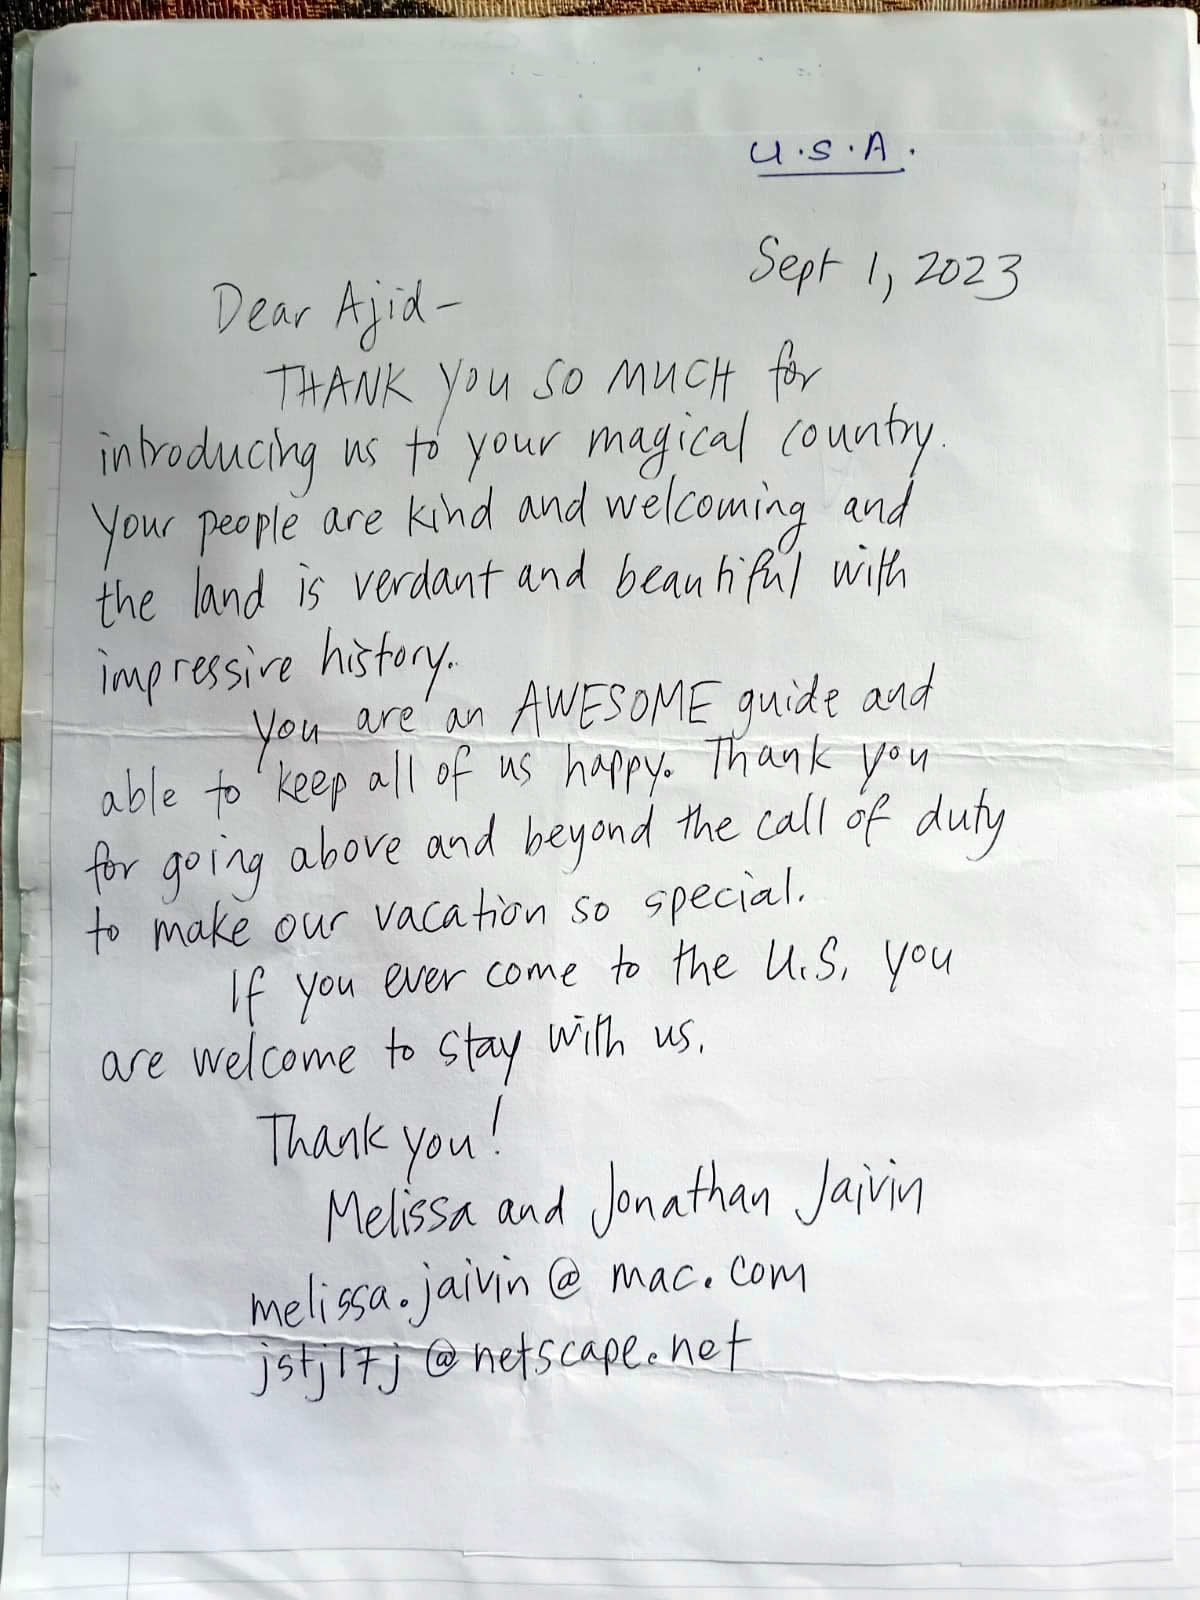 U.S.A.
Sept 1, 2023
Dear Ajid-
THANK YOU SO MUCH for
introducing us to your magical country.
Your people are kind and welcoming and
the land is verdant and beautiful with
impressive history.
You are an AWESOME guide and
able to keep all of us happy. Thank you
for going above and beyond the call of duty
to make our vacation so special.
If you ever come to the U.S, you
are welcome to stay with us.
Thank you!
Melissa and Jonathan Jaivin
melissa.jaivin@mac.com
jstj17j@netscape.net